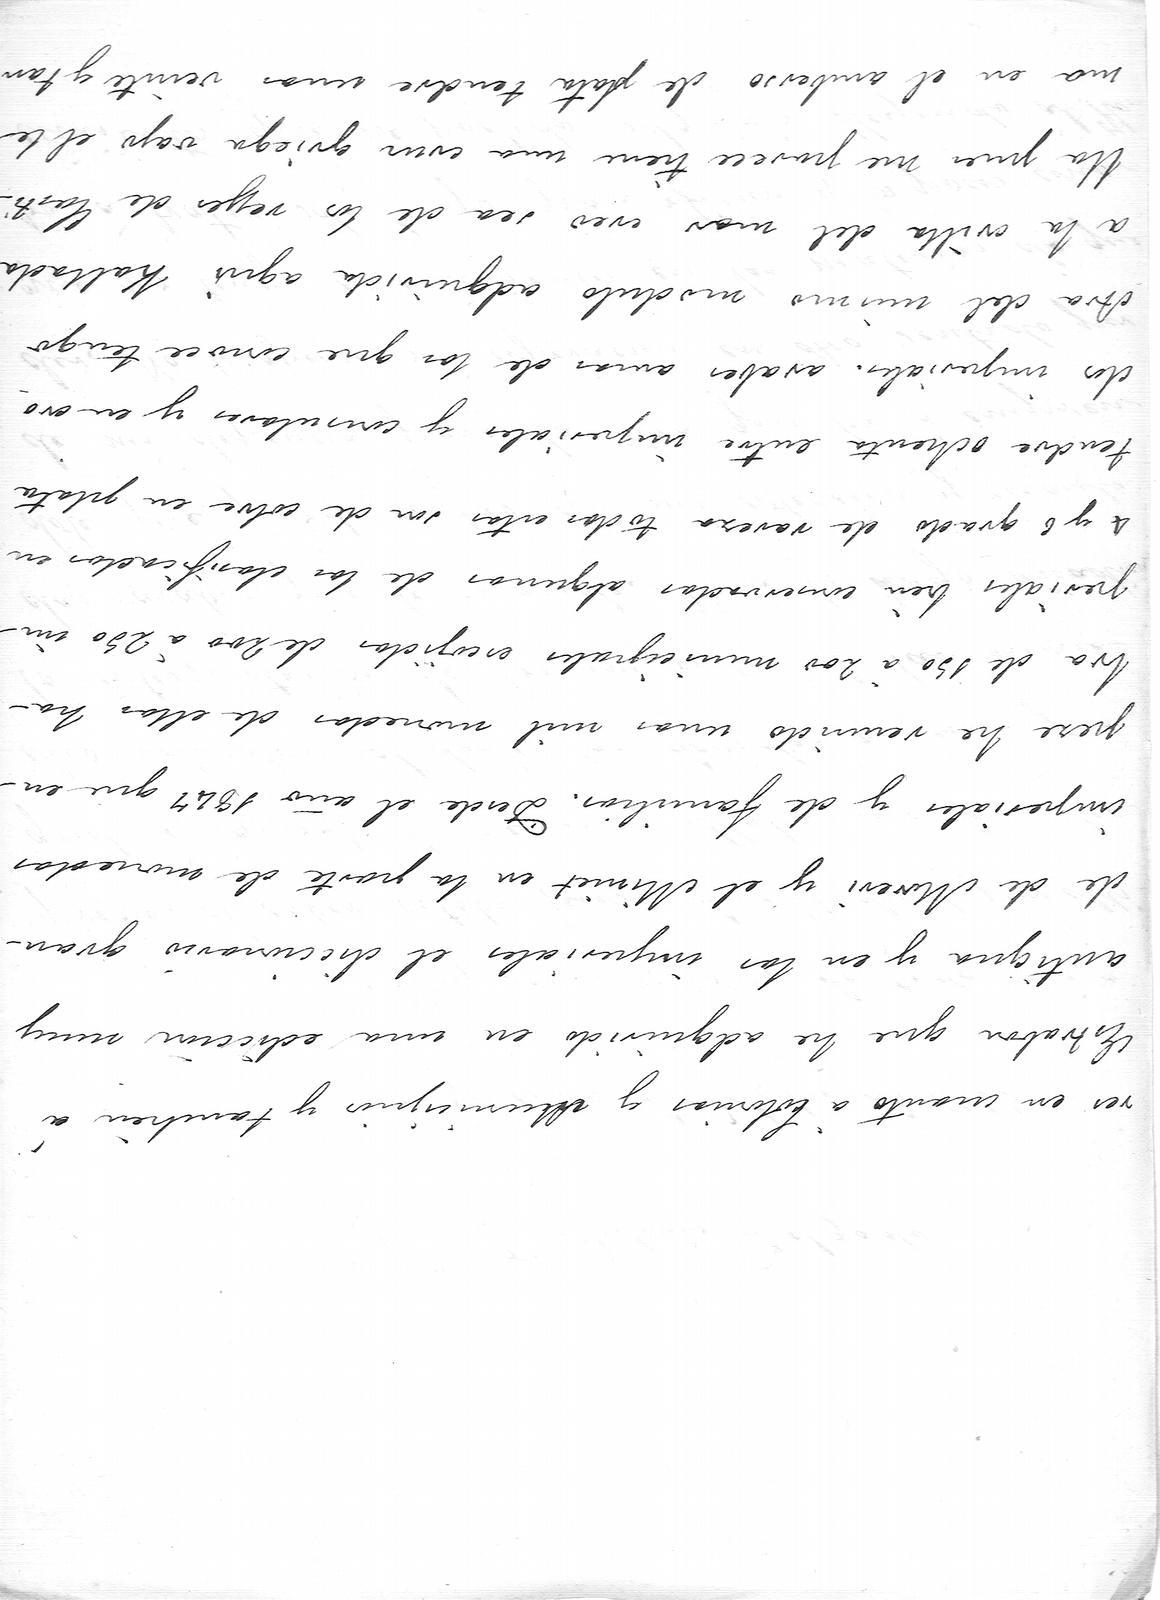 res en cuanto à Colonias y Municipios y tambien à
Estrabon que he adquirido en una edicion muy
antigua y en las imperiales el diccionario gran-
de de Moreri y el Mionet en la parte de monedas
imperiales y de familias. Desde el año 1847 que en-
pere he reunido unas mil monedas de ellas ha-
bra de 150 à 200 municipales escojidas de 200 à 250 im-
periales bien conservadas algunas de las clasificadas en
4 y 6 grado de rareza todas estas son de cobre en plata
tendre ochenta entre imperiales y consulares y en oro
dos imperiales. arabes amas de las que conoce tengo
otra del mismo modulo adquirida aqui hallada
a la orilla del mar creo sea de los reyes de Casti-
lla pues me parece tiene una cruz griega vajo el le
ma en el anberso de plata tendre unas veinte y tan